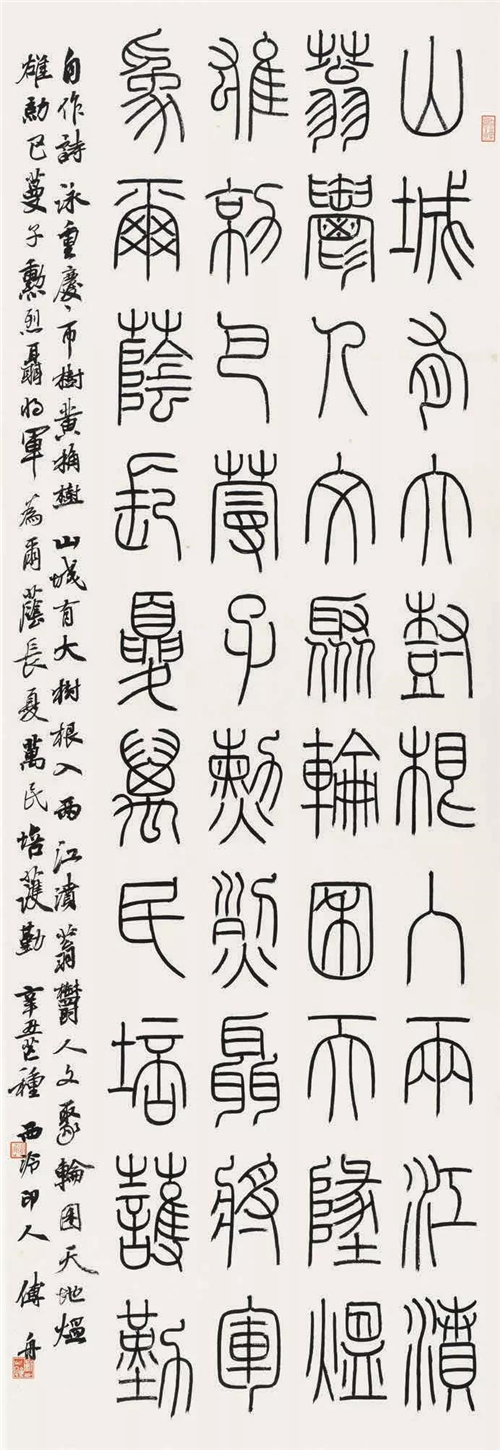 山城有大樹根入兩江濆
蓊鬱人文聚輪囷天地熅
雄勍巴蔓子勳烈聶將軍
為爾蔭長夏萬民培護勤
自作詩 詠重慶市樹黃桷樹 山城有大樹根入兩江濆蓊鬱人文聚輪囷天地熅
雄勍巴蔓子勳烈聶將軍為爾蔭長夏萬民培護勤 辛丑芒種 西泠印人 傅舟